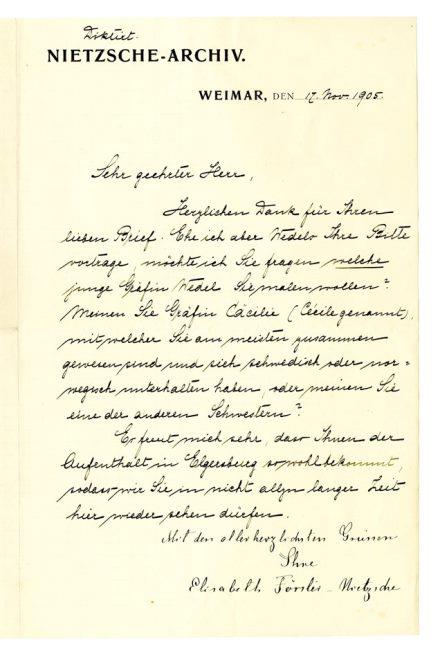 Diktiet.
NIETZSCHE-ARCHIV.
WEIMAR, DEN 17. Nov. 1905.
Sehr geehrter Herr,
Herzlichen Dank für Ihren
lieben Brief. Ehe ich aber Wedels Ihre Bitte
vortrage, möchte ich Sie fragen welche
junge Gräfin Wedel Sie malen wollen?
Meinen Sie Gräfin Cäcilie (Cécile genannt),
mit welcher Sie am meisten zusammen
gewesen sind und sich schwedisch oder nor=
wegisch unterhalten haben, oder meinen Sie
eine der anderen Schwestern?
Es freut mich sehr, dass Ihnen der
Aufenthalt in Elgersburg so wohl bekommt,
sodass wir Sie in nicht allzu langer Zeit
hier wieder sehen dürfen.
Mit den allerherzlichsten Grüssen
Ihre
Elisabeth Förster-Nietzsche